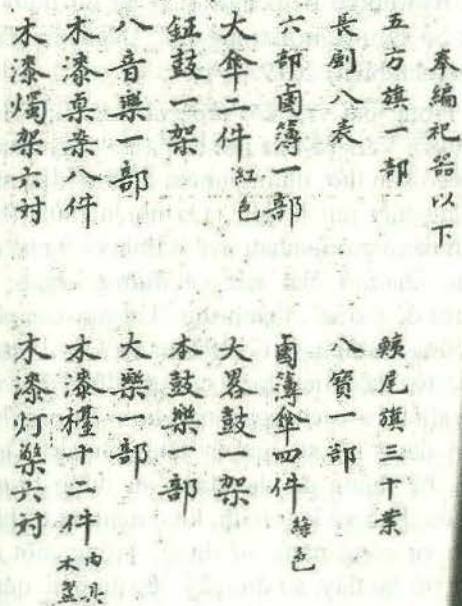 奉編祀器以下
五方旗一部 旗三十葉
長劍八表 八寶一部
六部鹵簿一部 鹵簿傘四件
大傘二件 紅色 大畧鼓一架
鉦鼓一架 鼓樂一部
八音樂一部 大樂一部
木漆 八件 木漆 件
木漆燭架六対 木漆灯檠六対